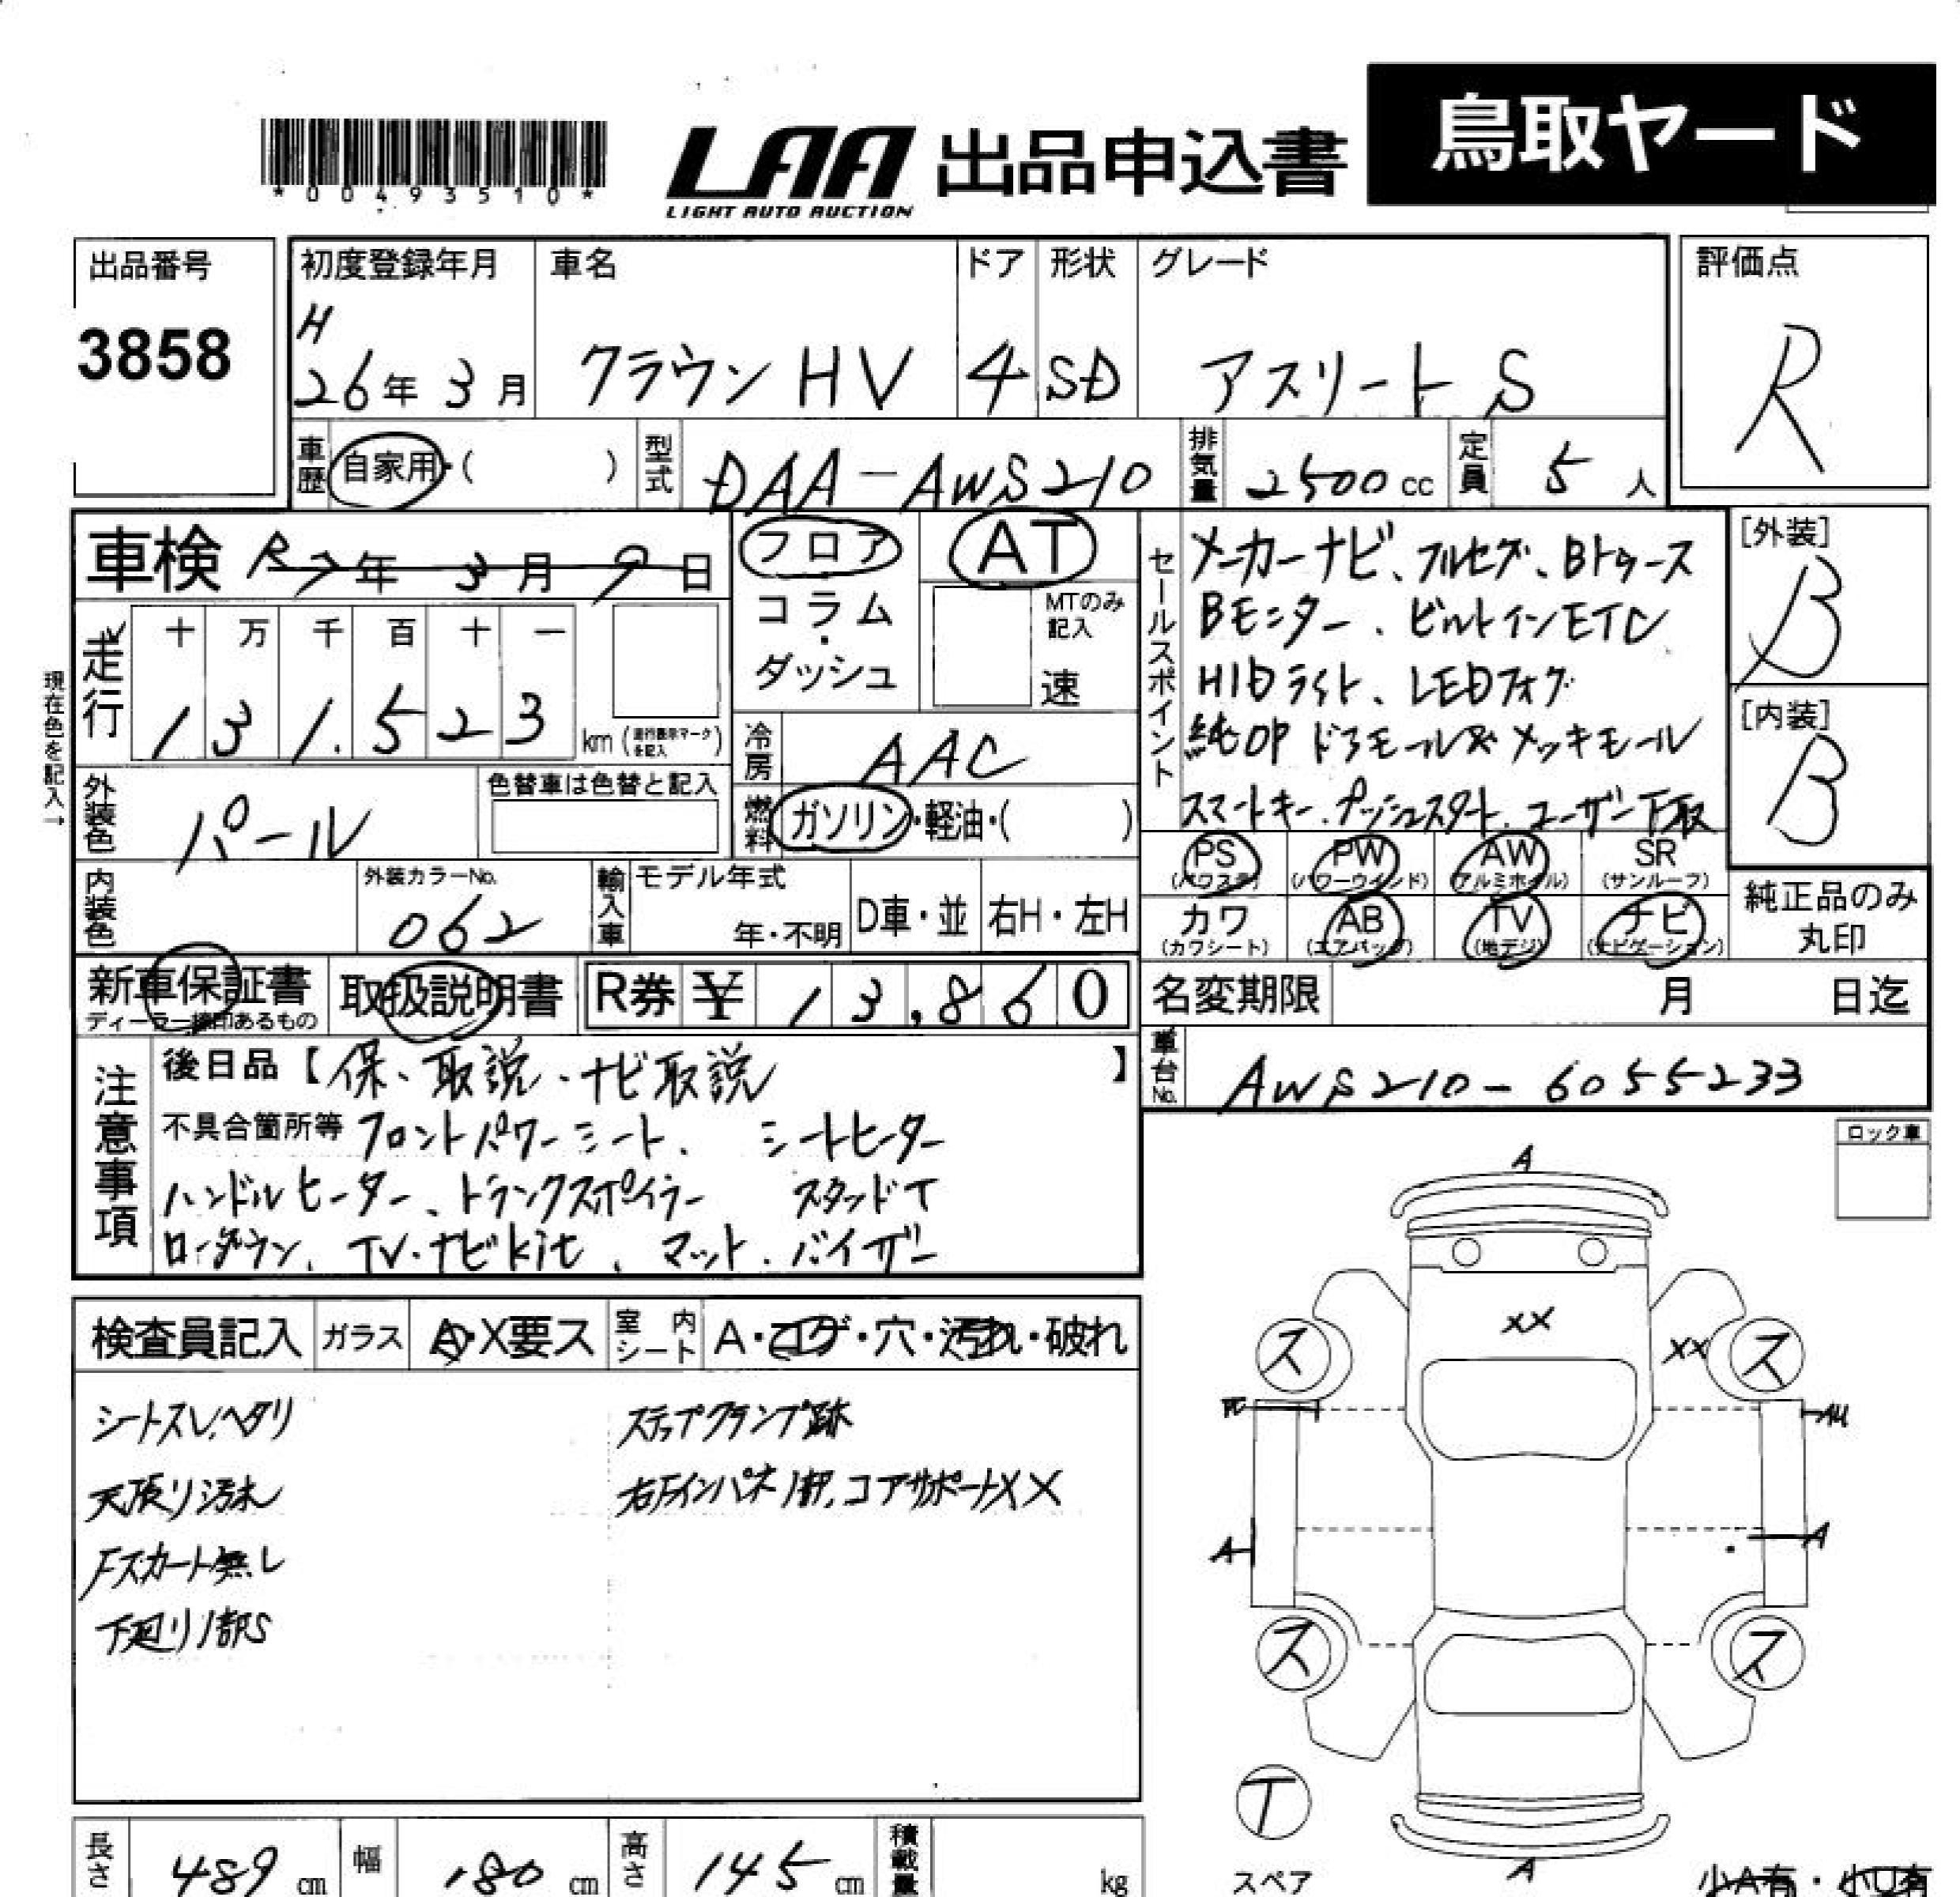 *00493510*
LAA 出品申込書 鳥取ヤード
LIGHT AUTO AUCTION
出品番号 3858
初度登録年月 H26年3月
車名 クラウンHV
ドア 4
形状 SD
グレード アスリートS
評価点 R
車歴 自家用・( )
型式 DAA-AWS210
排気量 2500cc
定員 5人
車検 R7年3月9日
フロア
コラム・ダッシュ
AT
MTのみ記入
速
走行 十万千百十一
131.523 km (走行表示マークを記入)
現在色を記入→
冷房 AAC
燃料 ガソリン・軽油・( )
外装色 パール
色替車は色替と記入
内装色
外装カラーNo. 062
輸入車 モデル年式 年・不明 D車・並 右H・左H
セールスポイント
メーカーナビ、フルセグ、Bトゥース
Bモニター、ビルトインETC
HIDライト、LEDフォグ
純OPドアモール&メッキモール
スマートキー、プッシュスタート、ユーザー下取
[外装] B
[内装] B
PS (パワステ) PW (パワーウインド) AW (アルミホイル) SR (サンルーフ)
カワ (カワシート) AB (エアバッグ) TV (地デジ) ナビ (ナビゲーション)
純正品のみ丸印
新車保証書 ディーラー捺印あるもの
取扱説明書
R券 ¥ 13,860
名変期限 月 日迄
車台No. AWS210-6055233
注意事項
後日品【保、取説、ナビ取説】
不具合箇所等 フロントパワーシート、シートヒーター
ハンドルヒーター、トランクスポイラー スタッドT
ローダウン、TV・ナビkit、マット、バイザー
ロック車
検査員記入 ガラス A・X要ス 室内シート A・コゲ・穴・汚れ・破れ
シートスレ、ヘタリ
天張り汚れ
Fスカート無し
下廻り1部S
ステップクランプ跡
右Fインパネ1部、コアサポートXX
A
XX
XX
ス ス
A A
ス ス
T
スペア
A
小A有・小U有
長さ 489cm 幅 180cm 高さ 145cm 積載量 kg